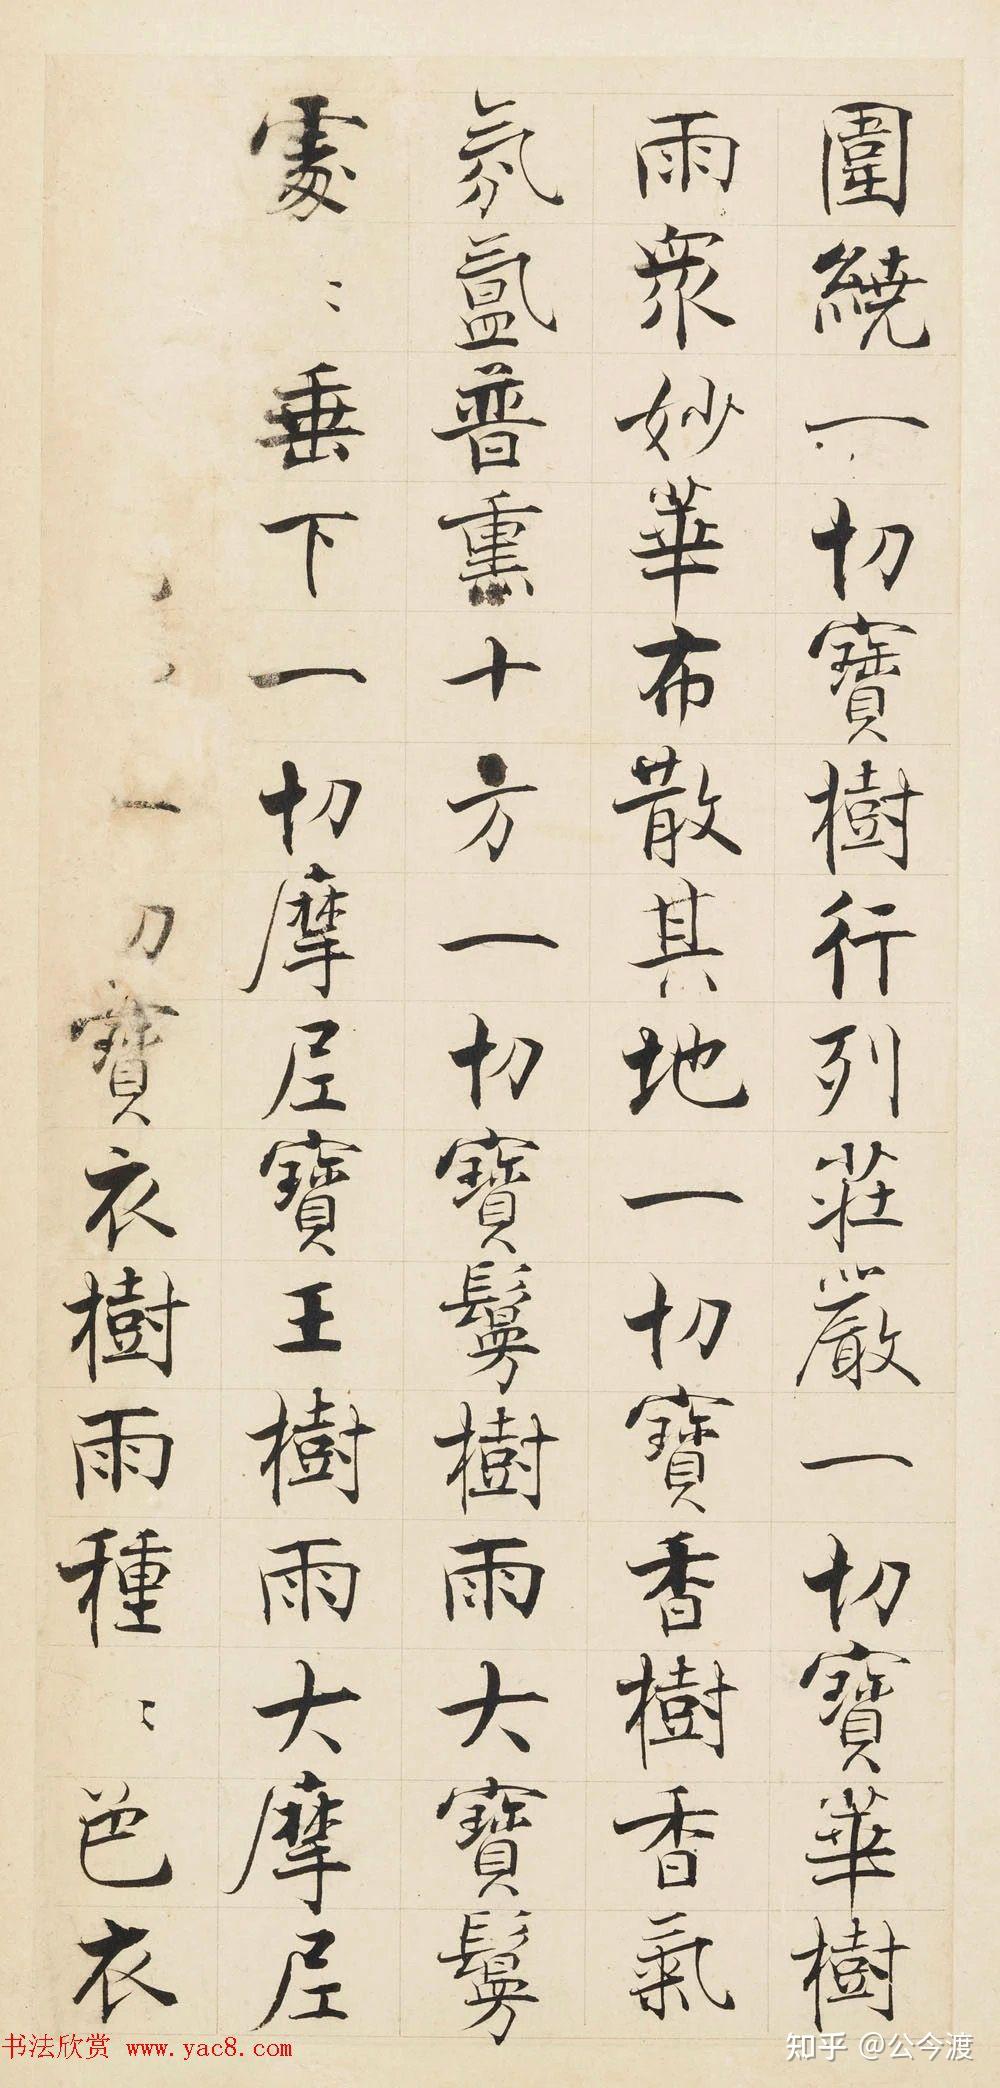 圍繞一切寶樹行列莊嚴一切寶華樹
雨衆妙華布散其地一切寶香樹香氣
氛氲普熏十方一切寶鬘樹雨大寶鬘
處〻垂下一切摩尼寶王樹雨大摩尼
一切寶衣樹雨種〻色衣
书法欣赏 www.yac8.com
知乎 @公今渡